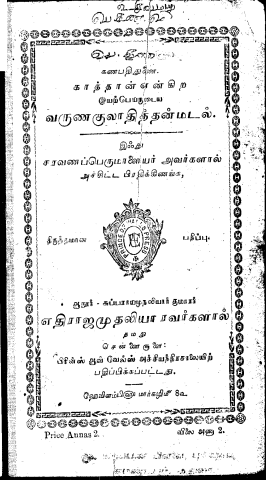 கணபதிதுணை.
காத்தான் என்கிற
இயற்பெயருடைய
வருணகுலாதித்தன்மடல்.
இஃது
சரவணப்பெருமாளையர் அவர்களால்
அச்சிட்ட பிரதிக்கிணங்க,
திருத்தமான பதிப்பு.
சுப்பராயமுதலியார் குமாரர்
எதிராஜமுதலியாரவர்களால்
தமது
சென்னை
பிரின்ஸ் ஆவ் வேல்ஸ் அச்சியந்திரசாலையிற்
பதிப்பிக்கப்பட்டது.
ஹேவிளம்பிளு மார்கழிமீ 8உ
Price Annas 2. விலை அணா 2.